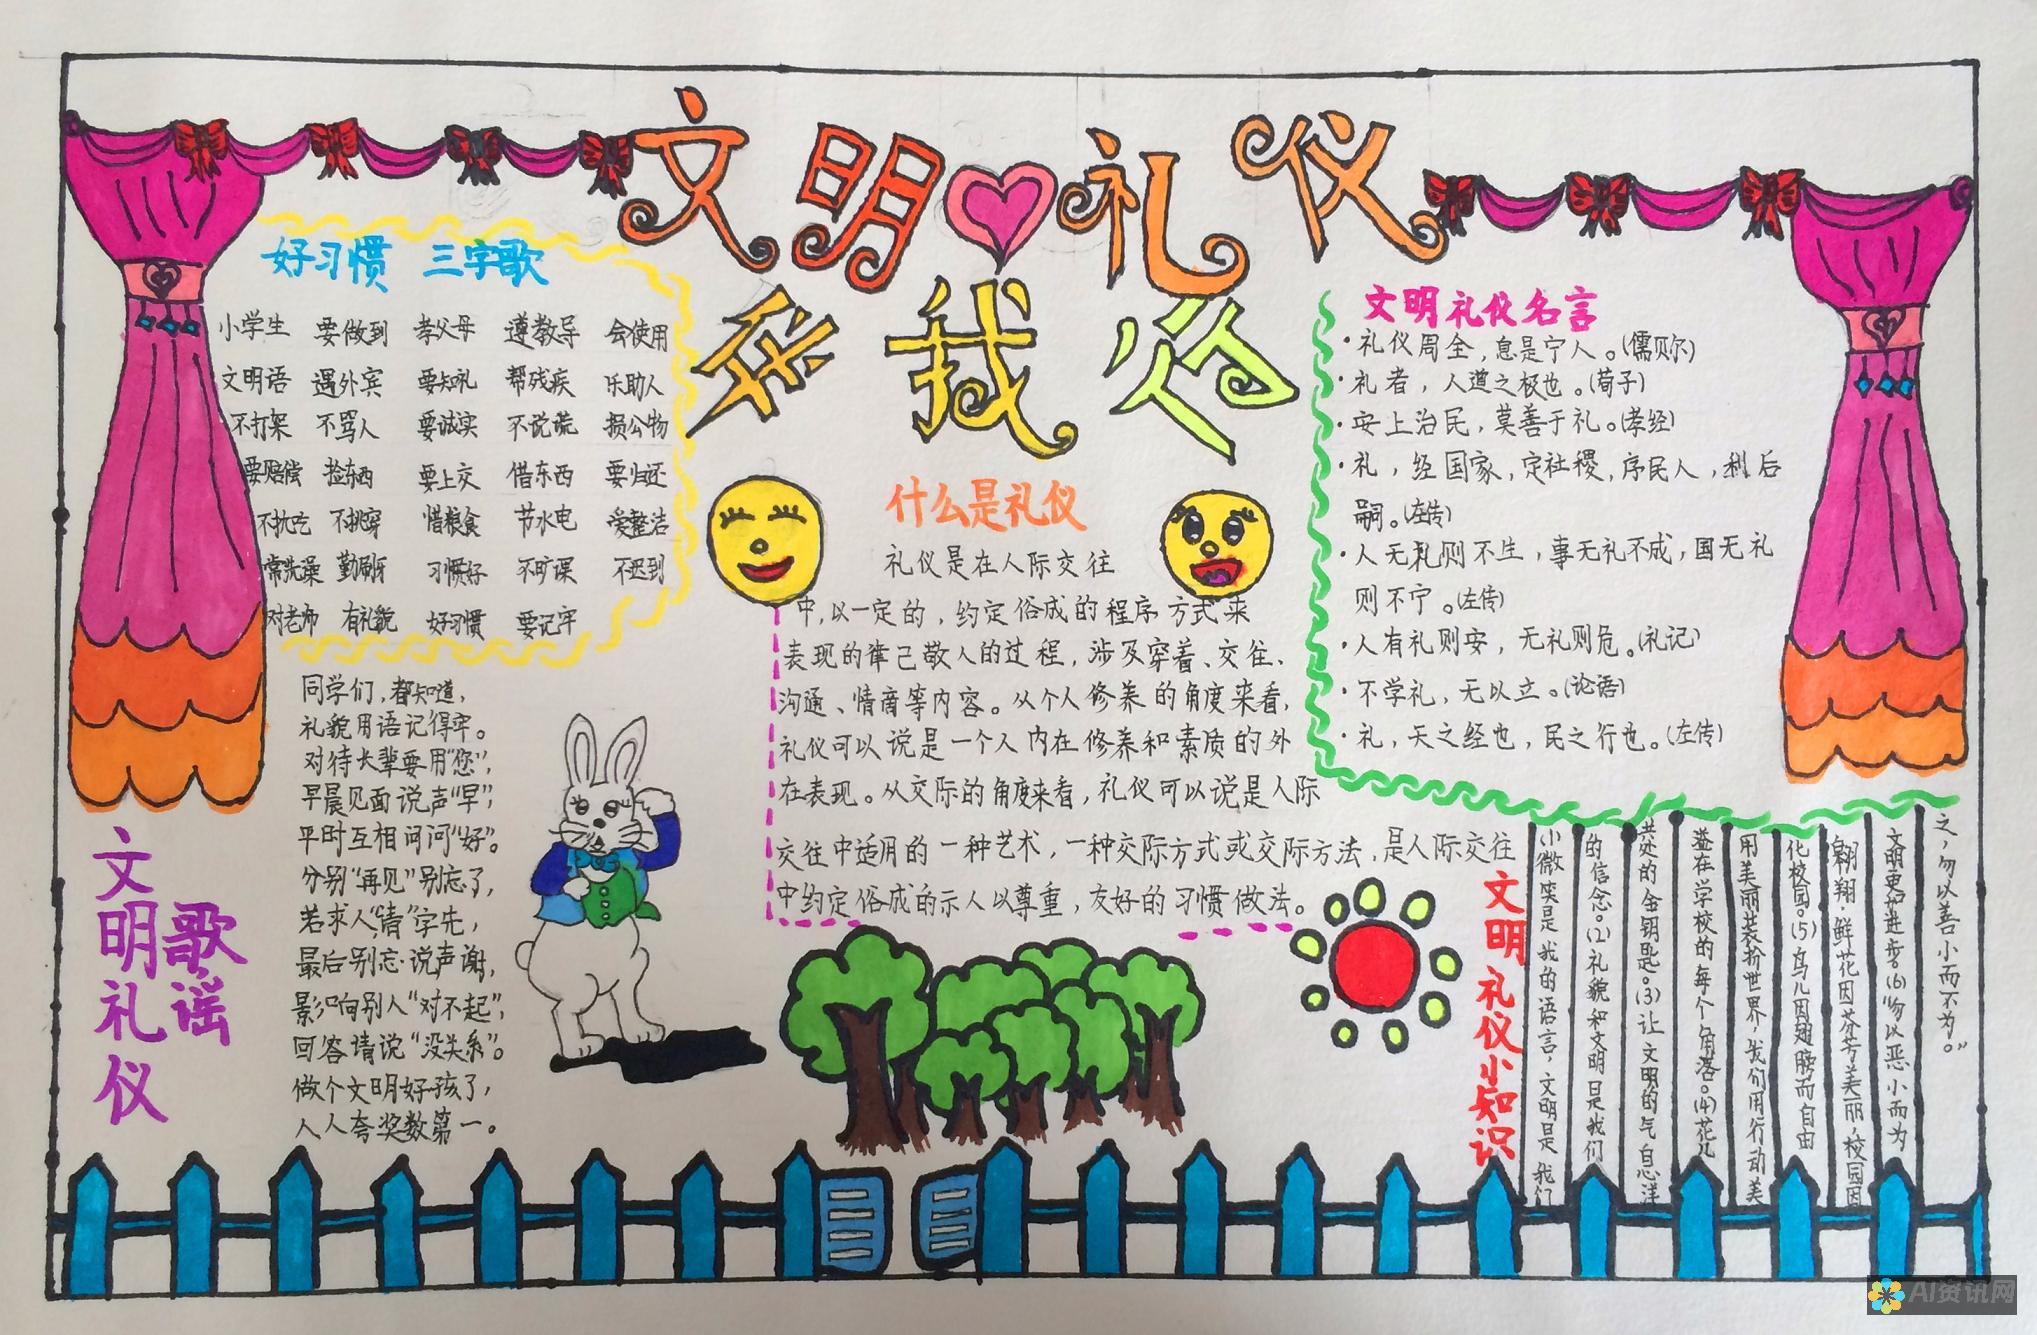 文明礼仪
在我心
好习惯 三字歌
小学生 要做到 孝父母 遵教导 会使用
文明语 遇外宾 要知礼 帮残疾 乐助人
不打架 不骂人 要诚实 不说谎 损公物
要赔偿 捡东西 要上交 借东西 要归还
不挑吃 不挑穿 惜粮食 节水电 爱整洁
常洗澡 勤刷牙 习惯好 不旷课 不迟到
对老师 有礼貌 好习惯 要记牢
文明礼仪
歌谣
同学们,都知道,
礼貌用语记得牢。
对待长辈要用“您”,
早晨见面说声“早”,
平时互相问问“好”。
分别“再见”别忘了,
若求人“请”字先,
最后别忘说声谢,
影响别人“对不起”,
回答请说“没关系”。
做个文明好孩子,
人人夸奖数第一。
什么是礼仪
礼仪是在人际交往
中,以一定的,约定俗成的程序方式来
表现的律己敬人的过程,涉及穿着、交往、
沟通、情商等内容。从个人修养的角度来看,
礼仪可以说是一个人内在修养和素质的外
在表现。从交际的角度来看,礼仪可以说是人际
交往中适用的一种艺术,一种交际方式或交际方法,是人际交往
中约定俗成的示人以尊重,友好的习惯做法。
文明礼仪名言
·礼仪周全,息是宁人。(儒贝尔)
·礼者,人道之极也。(荀子)
·安上治民,莫善于礼。(孝经)
·礼,经国家,定社稷,序民人,利后
嗣。(左传)
·人无礼则不生,事无礼不成,国无礼
则不宁。(左传)
·人有礼则安,无礼则危。(礼记)
·不学礼,无以立。(论语)
·礼,天之经也,民之行也。(左传)
文明礼仪小知识
小微笑是我的语言,文明是我们
的信念。(2)礼貌和文明是我们
共处的金钥匙。(3)让文明的气息洋
溢在学校的每个角落。(4)花儿
用美丽装扮世界,我们用行动美
化校园。(5)鸟儿因翅膀而自由
翱翔,鲜花因芬芳美丽,校园因
文明更加进步。(6)“勿以恶小而为
之,勿以善小而不为。”
AI资讯网